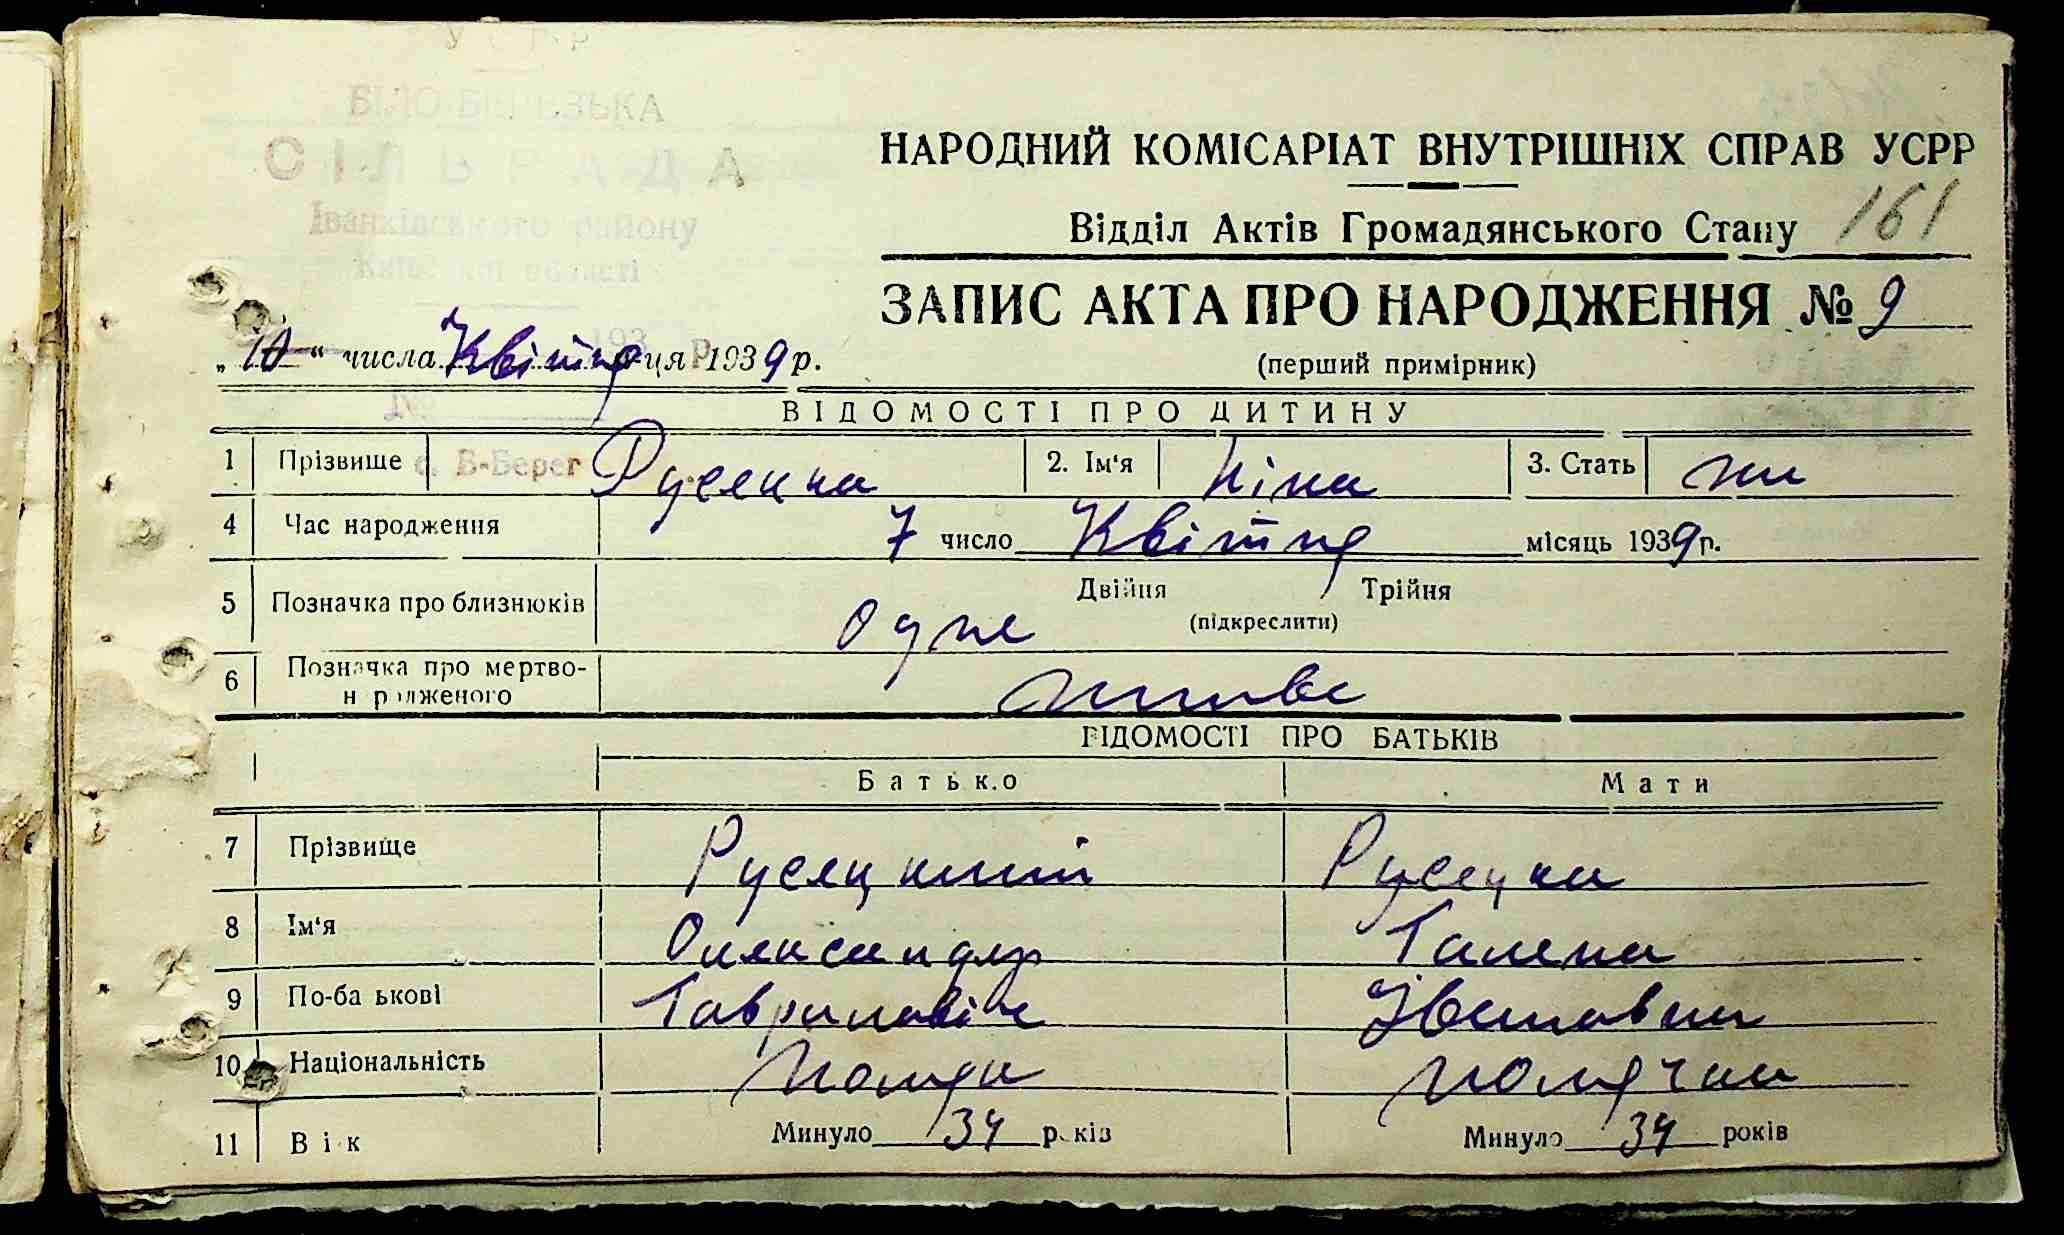 БІЛО-БЕРЕЗЬКА
СІЛЬРАДА
Іванківського району
Київської області
НАРОДНИЙ КОМІСАРІАТ ВНУТРІШНІХ СПРАВ УСРР
Відділ Актів Громадянського Стану 161
ЗАПИС АКТА ПРО НАРОДЖЕННЯ № 9
„10“ числа Квітня м-ця 1939 р.
(перший примірник)
№
ВІДОМОСТІ ПРО ДИТИНУ
1 Прізвище с. Б-Берег Русецка 2. Ім‘я Ніна 3. Стать жи
4 Час народження 7 число Квітня місяць 1939 р.
5 Позначка про близнюків Одне Двійня Трійня
(підкреслити)
6 Позначка про мертво-
народженого живе
ВІДОМОСТІ ПРО БАТЬКІВ
Батько Мати
7 Прізвище Русецкий Русецка
8 Ім‘я Олександр Галена
9 По-батькові Гаврилович Івановна
10 Національність Поляк Полячка
11 Вік Минуло 34 років Минуло 34 років